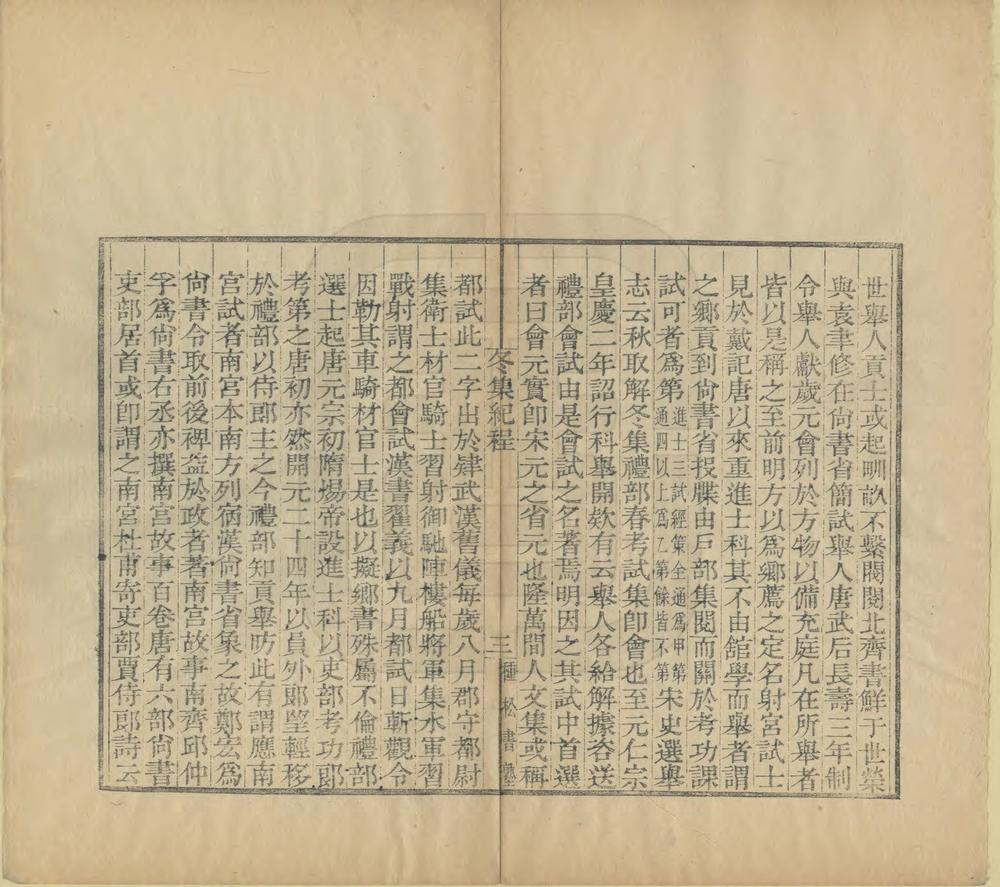 世舉人貢士或起甽畝不繫閥閱北齊書鮮于世榮
與袁聿修在尙書省簡試舉人唐武后長壽三年制
令舉人獻歲元會列於方物以備充庭凡在所舉者
皆以是稱之至前明方以爲鄉薦之定名射宮試士
見於戴記唐以來重進士科其不由舘學而舉者謂
之鄉貢到尙書省投牒由戶部集閱而關於考功課
試可者爲第進士三試經策全通爲甲第通四以上爲乙第餘皆不第宋史選舉
志云秋取解冬集禮部春考試集卽會也至元仁宗
皇慶二年詔行科舉開欵有云舉人各給解據咨送
禮部會試由是會試之名著焉明因之其試中首選
者曰會元實卽宋元之省元也隆萬間人文集或稱
冬集紀程
三
種松書塾
都試此二字出於肄武漢舊儀每歲八月郡守都尉
集衛士材官騎士習射御馳陣樓船將軍集水軍習
戰射謂之都會試漢書翟義以九月都試日斬觀令
因勒其車騎材官士是也以擬鄉書殊屬不倫禮部
選士起唐元宗初隋煬帝設進士科以吏部考功郎
考第之唐初亦然開元二十四年以員外郎望輕移
於禮部以侍郎主之今禮部知貢舉昉此有謂應南
宮試者南宮本南方列宿漢尙書省象之故鄭宏爲
尙書令取前後裨益於政者著南宮故事南齊邱仲
孚爲尙書右丞亦撰南宮故事百卷唐有六部尙書
吏部居首或卽謂之南宮杜甫寄吏部賈侍郎詩云